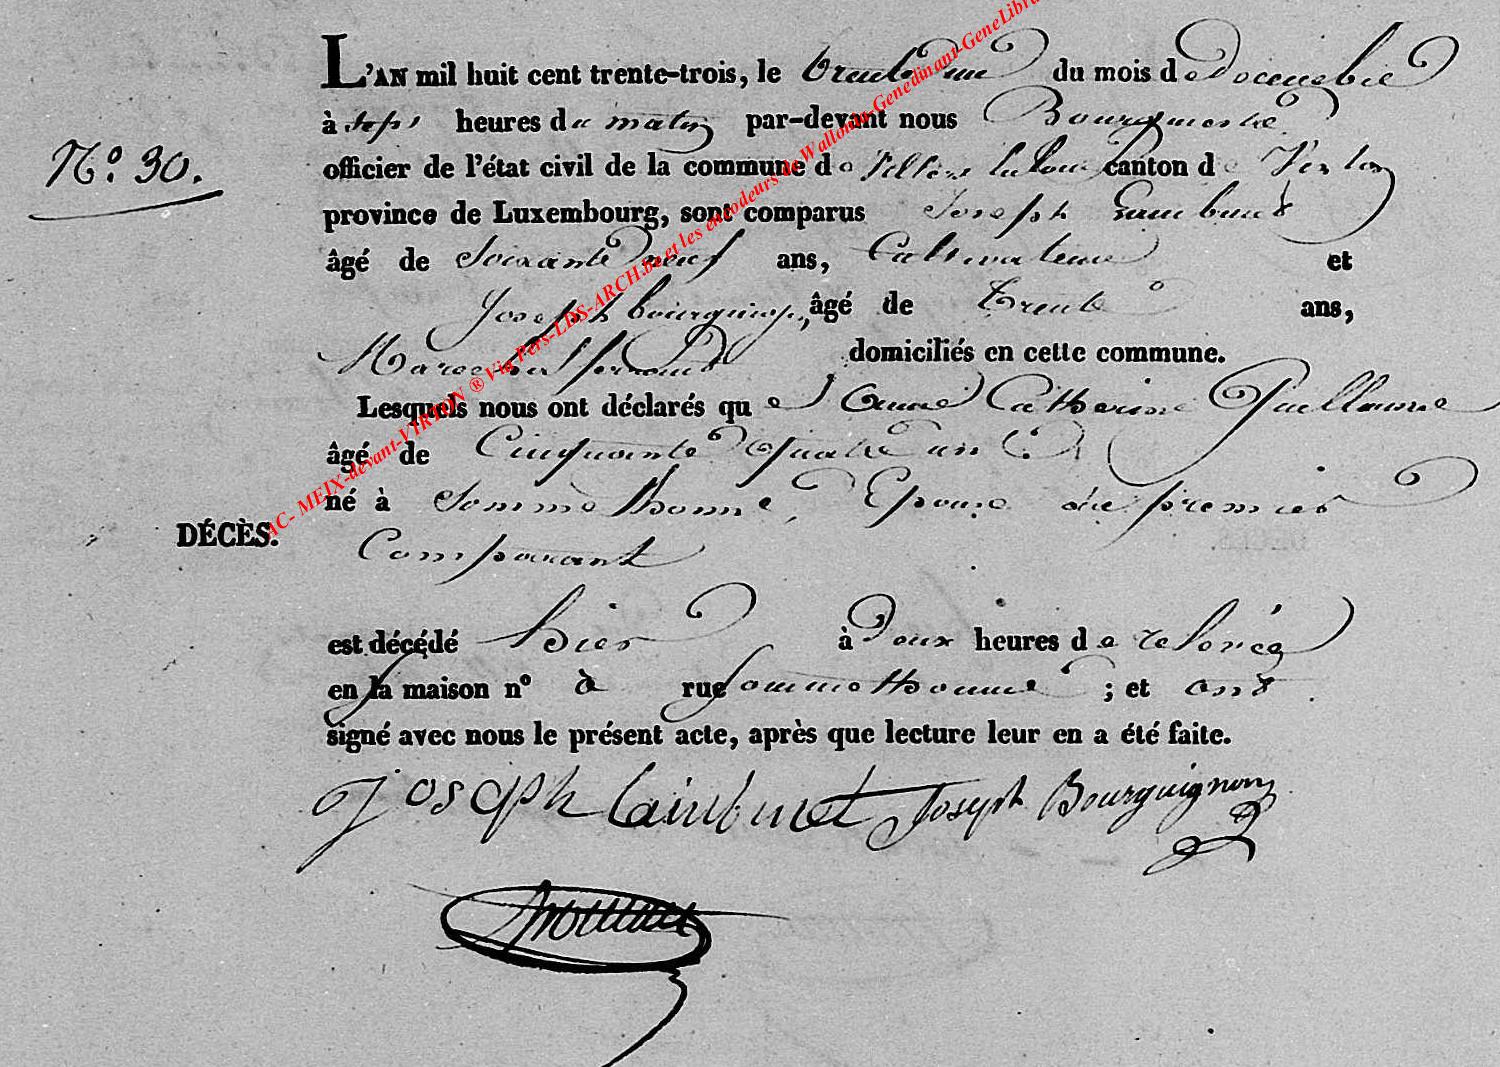 L'AN mil huit cent trente-trois, le trente un du mois de Decembre
à sept heures du matin par-devant nous Bourgmestre
N° 30.
officier de l'état civil de la commune de Villers la loue canton de Virton
province de Luxembourg, sont comparus Joseph
âgé de Soixante neuf ans, Cultivateur et
Joseph bourguign, âgé de trente ans,
Marechal ferrant domiciliés en cette commune.
Lesquels nous ont déclarés que Anne Catherine Guillaume
âgé de Cinquante quatre an
né à Sommethonne, Epouse du premier
DÉCÈS.
Comparant
est décédé hier à deux heures de relevée
en la maison n° à rue Sommethonne ; et ont
signé avec nous le présent acte, après que lecture leur en a été faite.
Joseph Joseph Bourguignon
AC- MEIX-devant-VIRTON ® Via Pers-LDS-ARCH.be et les encodeurs de Wallonia-Genedinant-GeneLibra